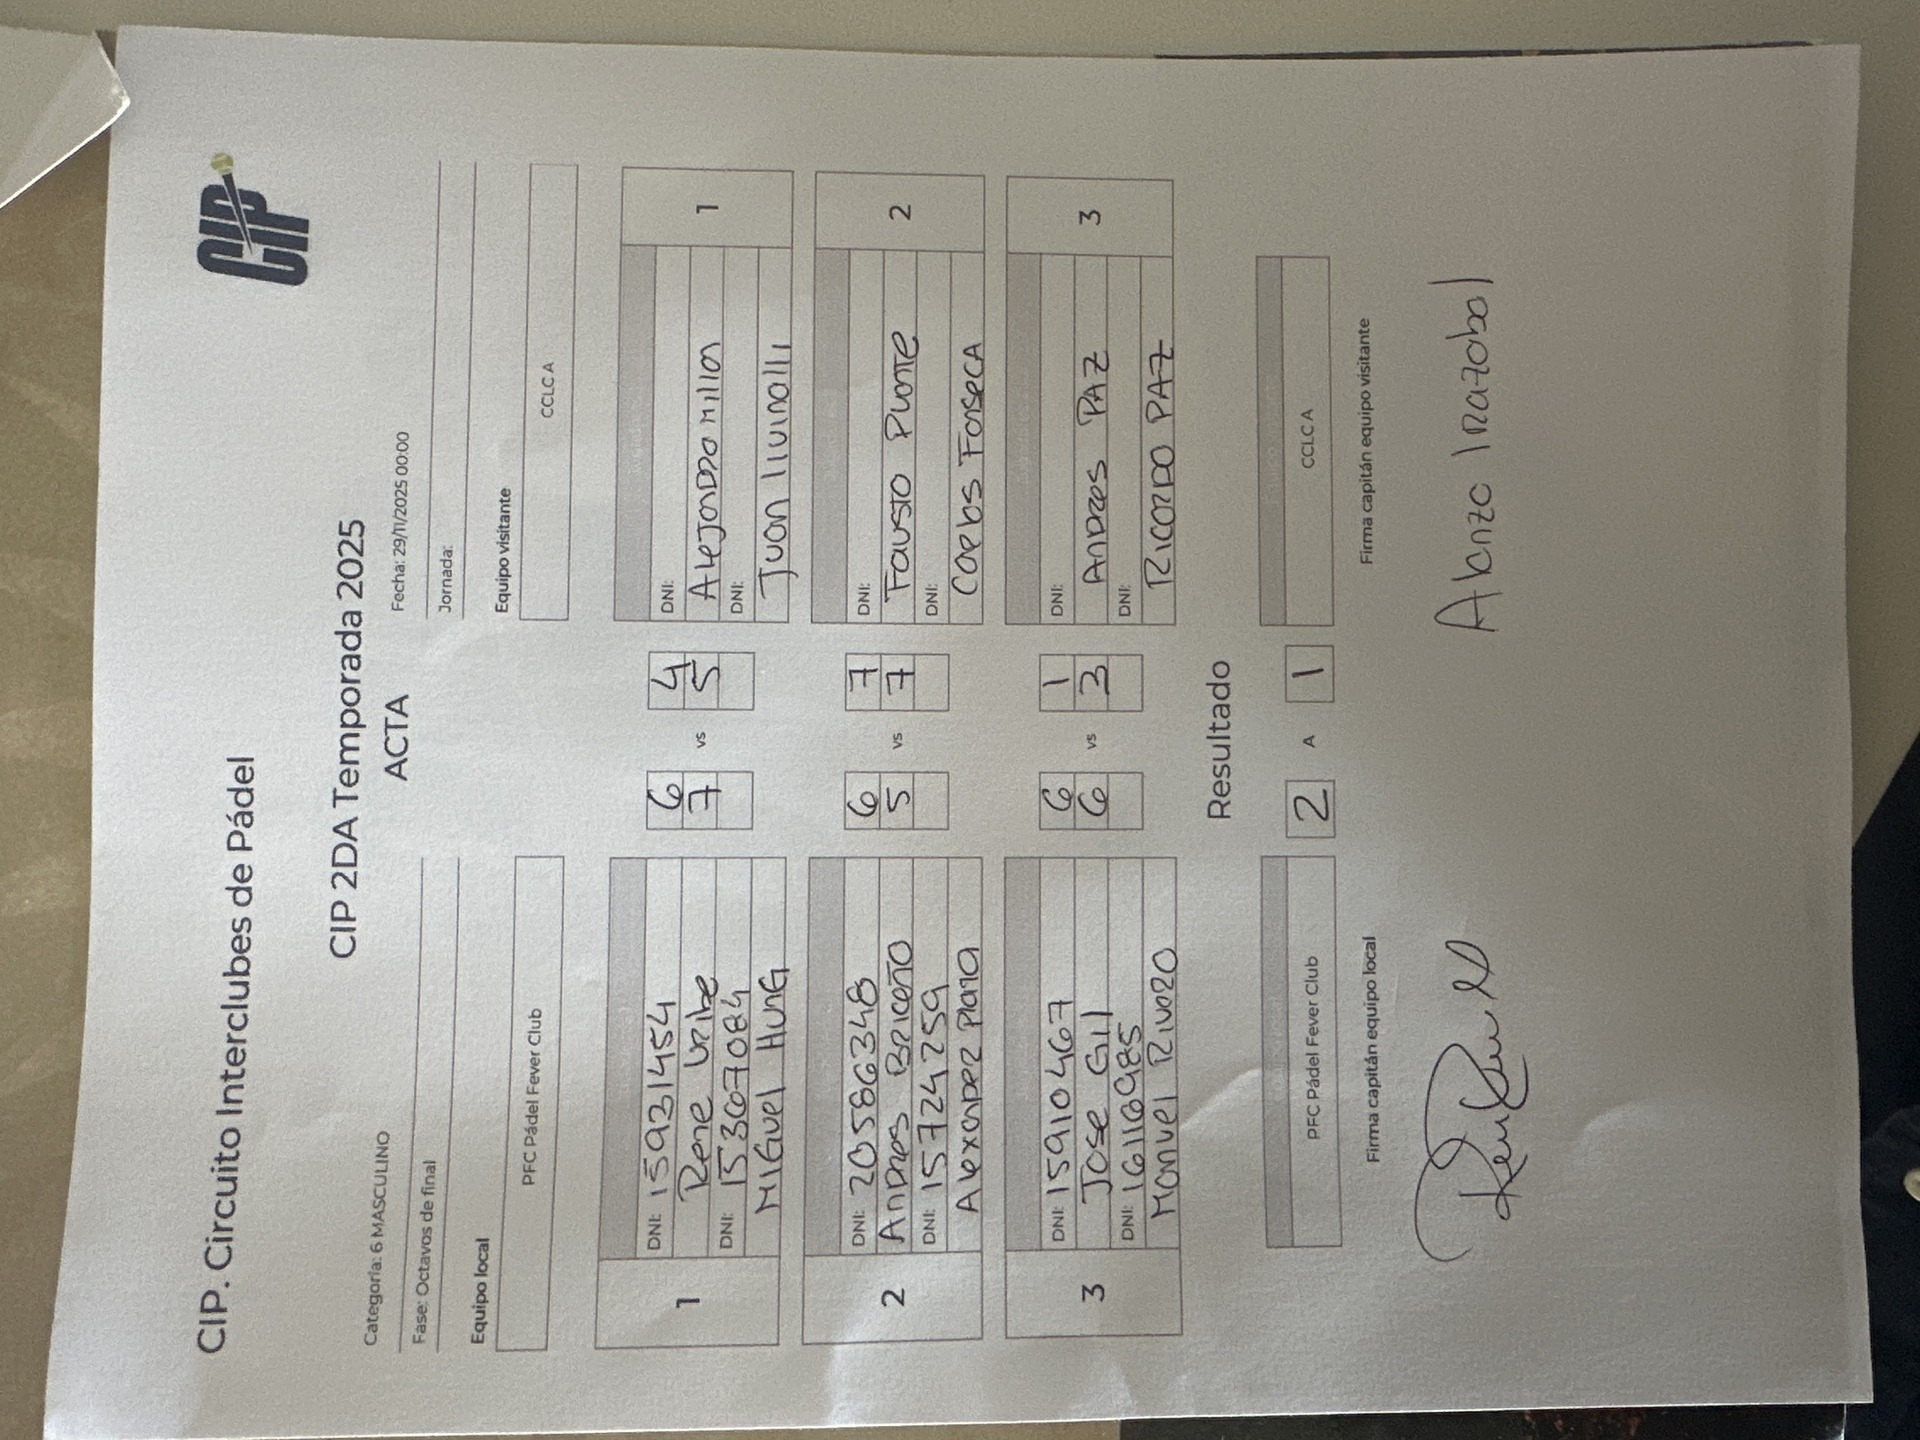 CIP
CIP. Circuito Interclubes de Pádel
CIP 2DA Temporada 2025
ACTA
Categoría: 6 MASCULINO
Fecha: 29/11/2025 00:00
Fase: Octavos de final
Jornada:
Equipo local
Equipo visitante
PFC Pádel Fever Club
CCLC A
1
DNI: 15931454
Rene Uribe
DNI: 15367084
Miguel Hung
6 vs 4
7 5
DNI:
Alejandro Millan
DNI:
Juan
1
2
DNI: 20586348
Andres Briceño
DNI: 15724259
Alexander Plata
6 vs 7
5 7
DNI:
Fausto
DNI:
Carlos Fonseca
2
3
DNI: 15910467
Jose Gil
DNI: 16116985
Manuel Rivozo
6 vs 1
6 3
DNI:
Andres PAZ
DNI:
Ricardo PAZ
3
Resultado
PFC Pádel Fever Club
2 A 1
CCLC A
Firma capitán equipo local
Firma capitán equipo visitante